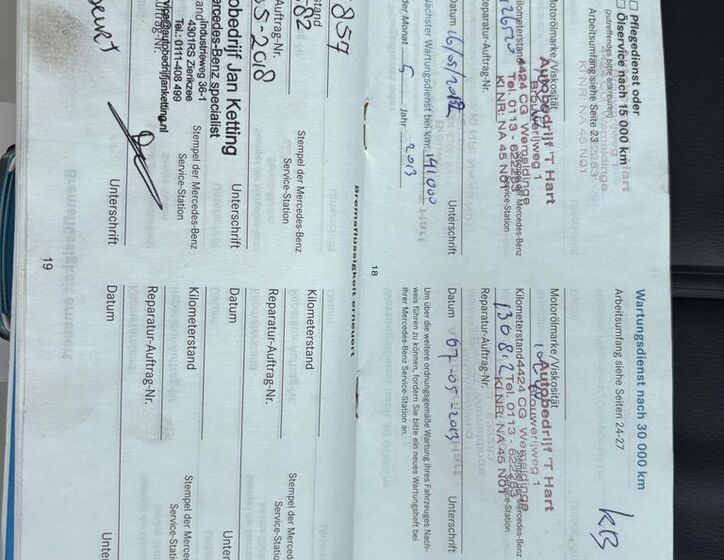 ☐ Pflegedienst oder
☐ Ölservice nach 15 000 km
(zutreffendes bitte ankreuzen)
Arbeitsumfang siehe Seite 23
Motorölmarke/Viskosität
Autobedrijf 'T Hart
Brouwerijweg 1
Kilometerstand
4424 CG Wemeldinge
Tel. 0113 - 622283
KI NR: NA 45 N01
126520
Stempel der Mercedes-Benz
Service-Station
Reparatur-Auftrag-Nr.
Datum 16/05/2012
Unterschrift
Nächster Wartungsdienst bei km: 141000
oder Monat 5 Jahr 2013
18
Wartungsdienst nach 30 000 km
Arbeitsumfang siehe Seiten 24-27
KB
Motorölmarke/Viskosität
Autobedrijf 'T Hart
Brouwerijweg 1
Kilometerstand
4424 CG Wemeldinge
Tel. 0113 - 622283
KI NR: NA 45 N01
130812
Stempel der Mercedes-Benz
Service-Station
Reparatur-Auftrag-Nr.
Datum 07-05-2013
Unterschrift
Um über die weitere ordnungsgemäße Wartung Ihres Fahrzeuges Nach-
weis führen zu können, fordern Sie bitte ein neues Wartungsheft bei
Ihrer Mercedes-Benz Service-Station an.
Bremsflüssigkeit erneuert
Stempel der Mercedes-Benz
Service-Station
Auftrag-Nr.
05-2018
Unterschrift
obedrijf Jan Ketting
ercedes-Benz specialist
Industrieweg 36-1
4301RS Zierikzee
Tel.: 0111-408 499
@autobedrijfjanketting.nl
Stempel der Mercedes-Benz
Service-Station
Unterschrift
19
Kilometerstand
Stempel der Mercedes-Benz
Service-Station
Reparatur-Auftrag-Nr.
Datum
Unterschrift
Kilometerstand
Stempel der Mercedes-Benz
Service-Station
Reparatur-Auftrag-Nr.
Datum
Unterschrift